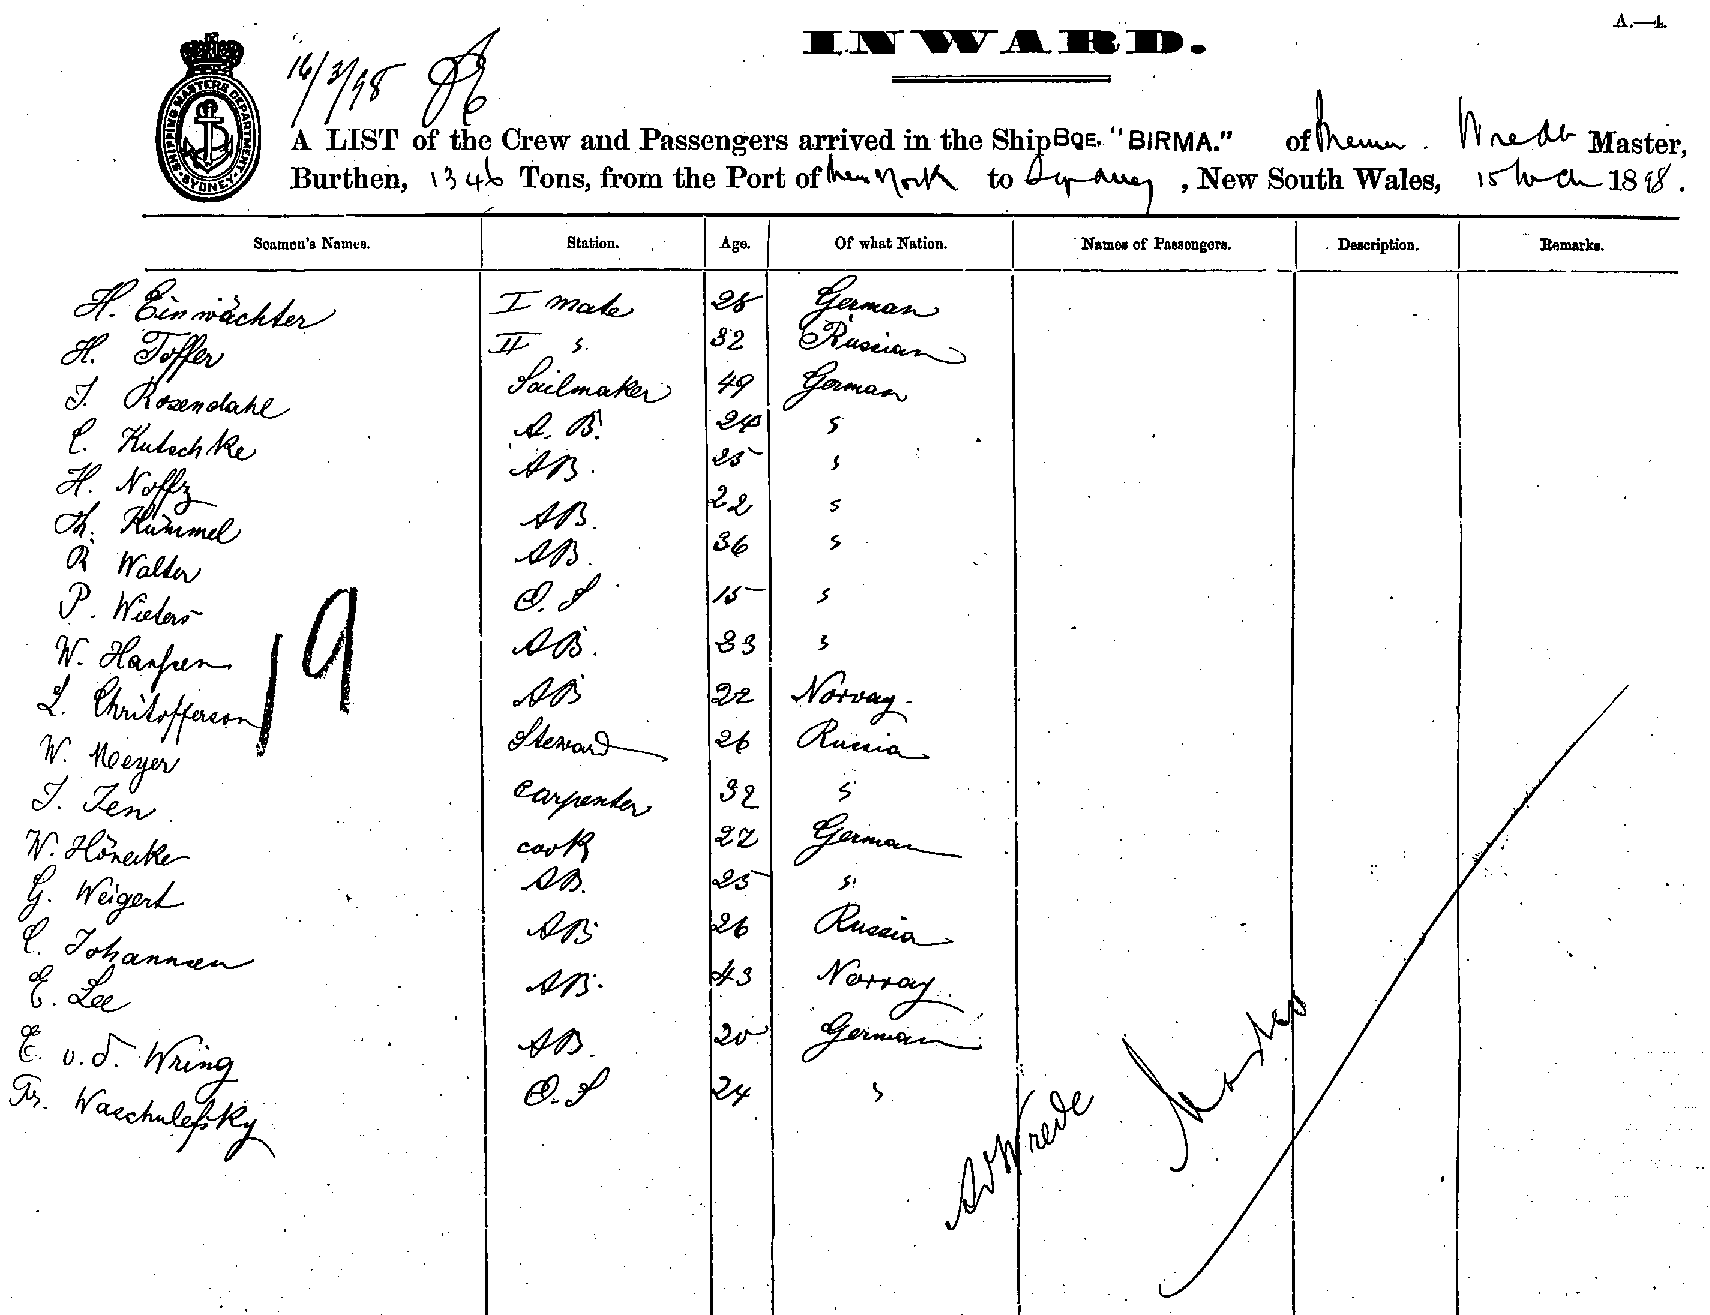 A.—4.
INWARD.
16/3/98
SHIPPING MASTERS DEPARTMENT SYDNEY
A LIST of the Crew and Passengers arrived in the Ship BQE. "BIRMA." of Bremen. Wrede Master,
Burthen, 1346 Tons, from the Port of New York to Sydney, New South Wales, 15 March 1898.
Seamen's Names. Station. Age. Of what Nation. Names of Passengers. Description. Remarks.
H. Einwächter I mate 28 German
H. Toffer II " 32 Russian
J. Rosendahl Sailmaker 49 German
C. Kutschke A. B. 24 "
H. Noffz AB. 25 "
Th. Kümmel AB. 22 "
R Walter AB. 36 "
P. Wieters O. S 15 "
W. Hanssen AB. 23 "
L. Chritofferson AB 22 Norvay.
W. Meyer Steward 26 Russia
J. Jen carpenter 32 "
W. Hönecke cook 22 German
G. Weigert AB. 25 "
C. Johannsen AB 26 Russia
E. Lee AB. 43 Norvay
E. v. d. Wring AB. 20 German
Fr. Waschulefsky O. S 24 "
19
Wrede Master